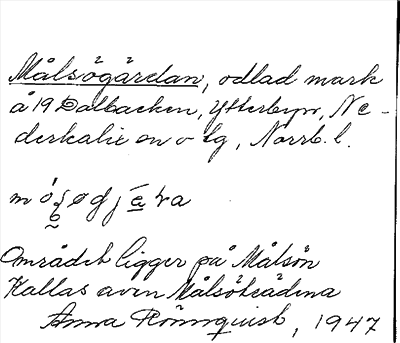 Målsögärdan, odlad mark
å 19 Dalbacken, Ytterbyn, Ne-
derkalix sn o tg, Norrb. l.
Området ligger på Målsön
Kallas även Målsötäädena
Anna Rönnquist, 1947